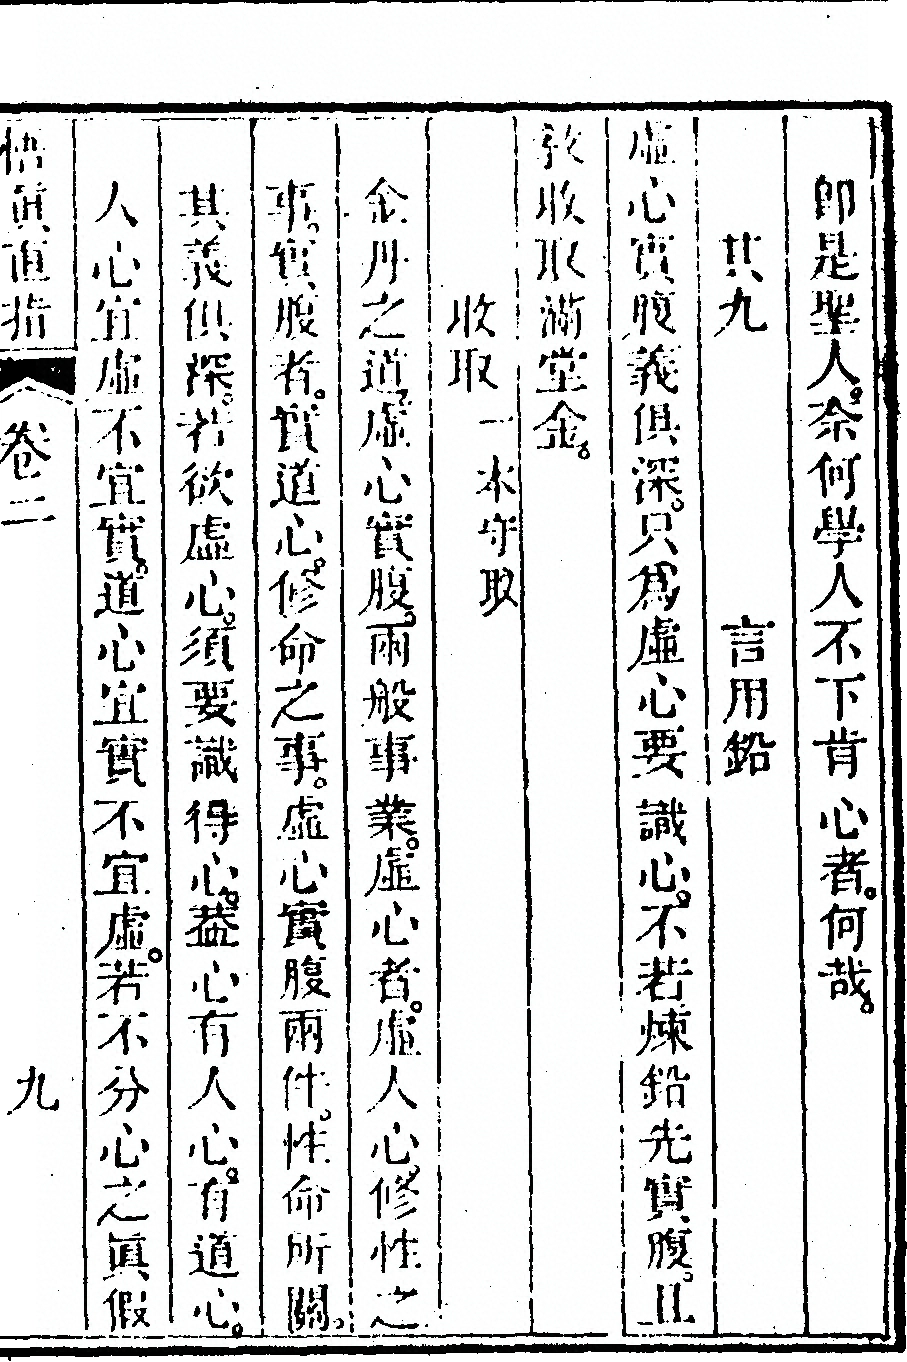 卽是聖人。奈何學人不下肯心者。何哉。
其九　言用鉛
虛心實腹義俱深。只爲虛心要識心。不若煉鉛先實腹。且
敎收取滿堂金。
收取　一本守取
金丹之道。虛心實腹。兩般事業。虛心者。虛人心。修性之
事。實腹者。實道心。修命之事。虛心實腹兩件。性命所關。
其義俱深。若欲虛心。須要識得心。葢心有人心。有道心。
人心宜虛不宜實。道心宜實不宜虛。若不分心之眞假
悟眞直指　卷二　九